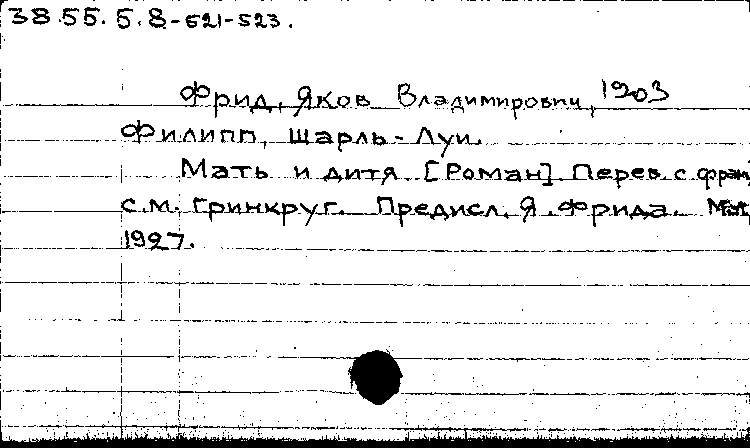 38.55.5.8-521-523.
Фрид, Яков Владимирович, 1903
Филипп, Шарль-Луи.
Мать и дитя. [Роман]. Перев. с франц
С.М. Гринкруг. Предисл. Я. Фрида.
1927.